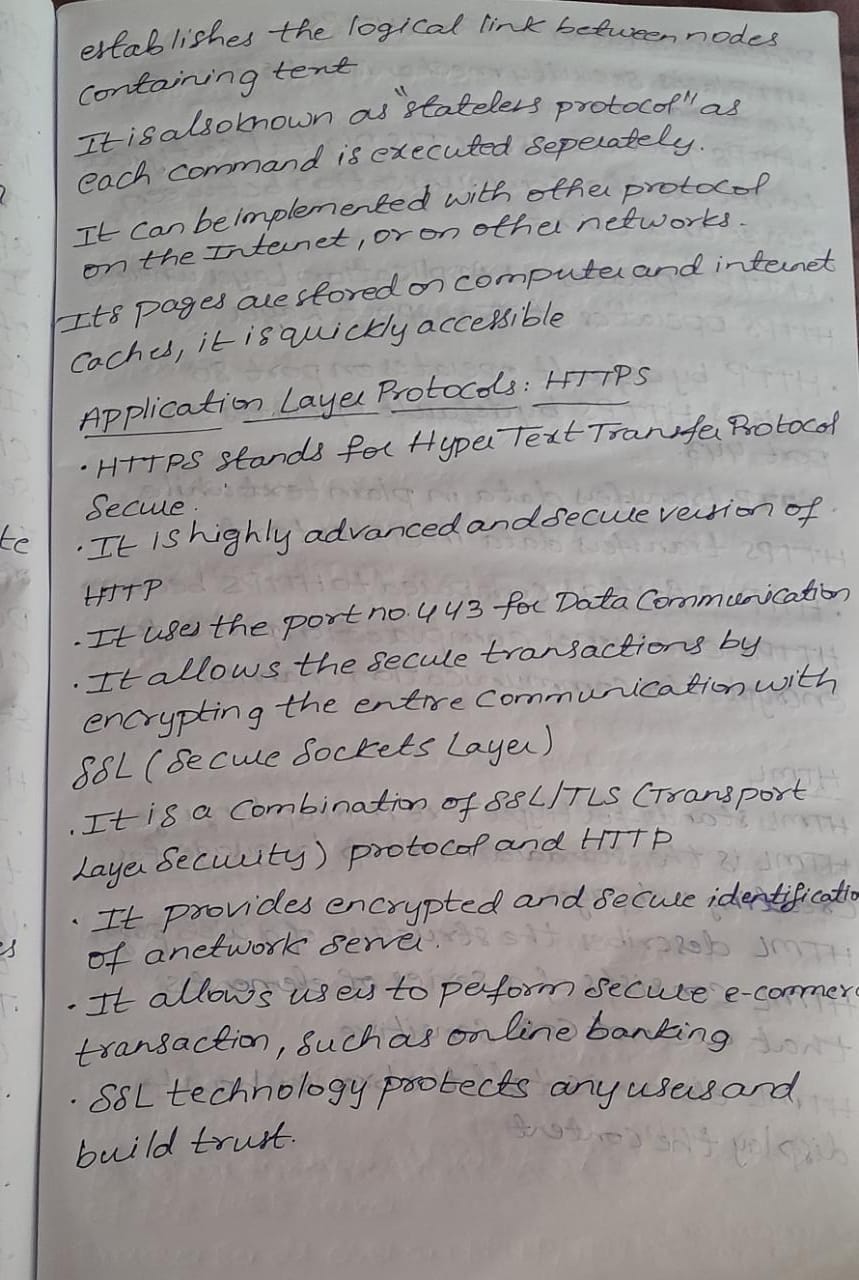 establishes the logical link between nodes
containing text
It is also known as "stateless protocol" as
each command is executed seperately.
It can be implemented with other protocol
on the Internet, or on other networks.
Its pages are stored on computer and internet
caches, it is quickly accessible
Application Layer Protocols: HTTPS
· HTTPS stands for Hyper Text Transfer Protocol
Secure.
· It is highly advanced and secure version of
HTTP
· It uses the port no. 443 for Data Communication
· It allows the secure transactions by
encrypting the entire communication with
SSL (Secure Sockets Layer)
· It is a combination of SSL/TLS (Transport
Layer Security) protocol and HTTP
· It provides encrypted and secure identificatio
of a network server.
· It allows users to perform secure e-commerc
transaction, such as online banking
· SSL technology protects any users and
build trust.
te
es